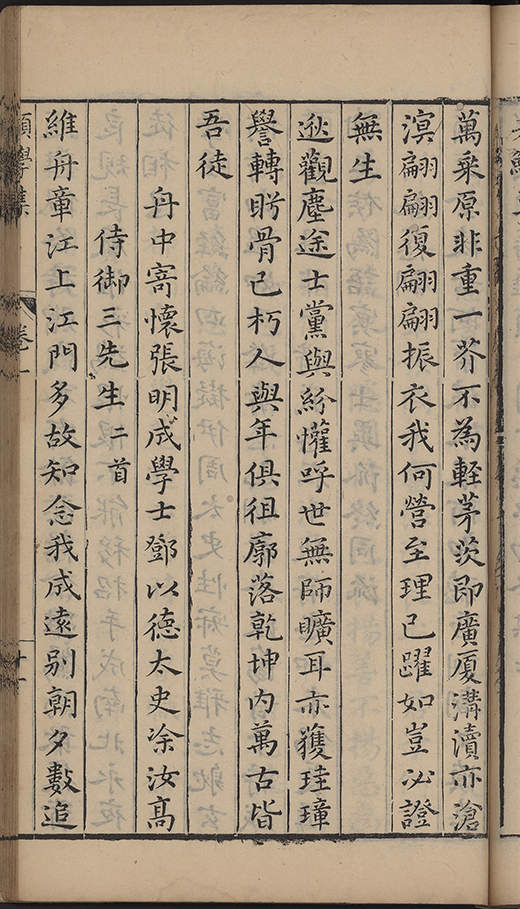 萬乗原非重一芥不為輕茅茨即廣厦溝瀆亦滄
溟翩翩復翩翩振衣我何營至理已躍如豈必證
無生
逖觀塵途士黨與紛懽呼世無師曠耳亦獲珪璋
譽轉盻骨已朽人與年俱徂廓落乾坤內萬古皆
吾徒
舟中寄懷張明成學士鄧以德太史凃汝髙
侍御三先生二首
維舟章江上江門多故知念我成遠別朝夕數追
願學集
卷一